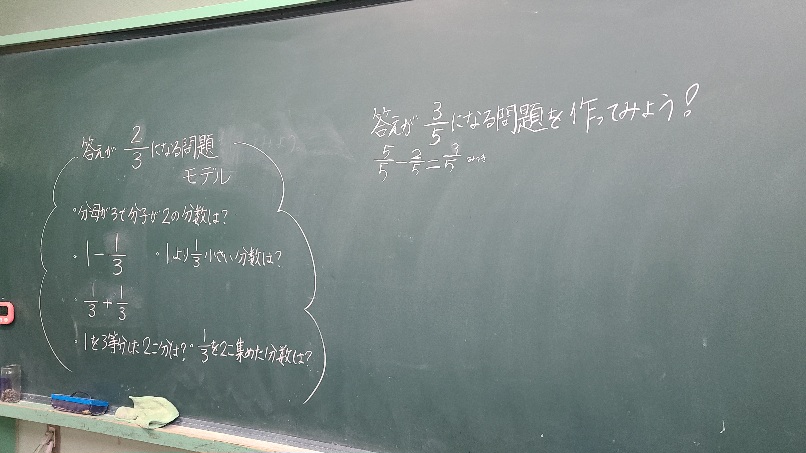 答えが 2/3 になる問題
モデル
・分母が3で分子が2の分数は?
・1 - 1/3 ・1より 1/3 小さい分数は?
・1/3 + 1/3
・1を3等分した2こ分は? ・1/3を2こ集めた分数は?
答えが 3/5 になる問題を作ってみよう!
5/5 - 2/5 = 3/5